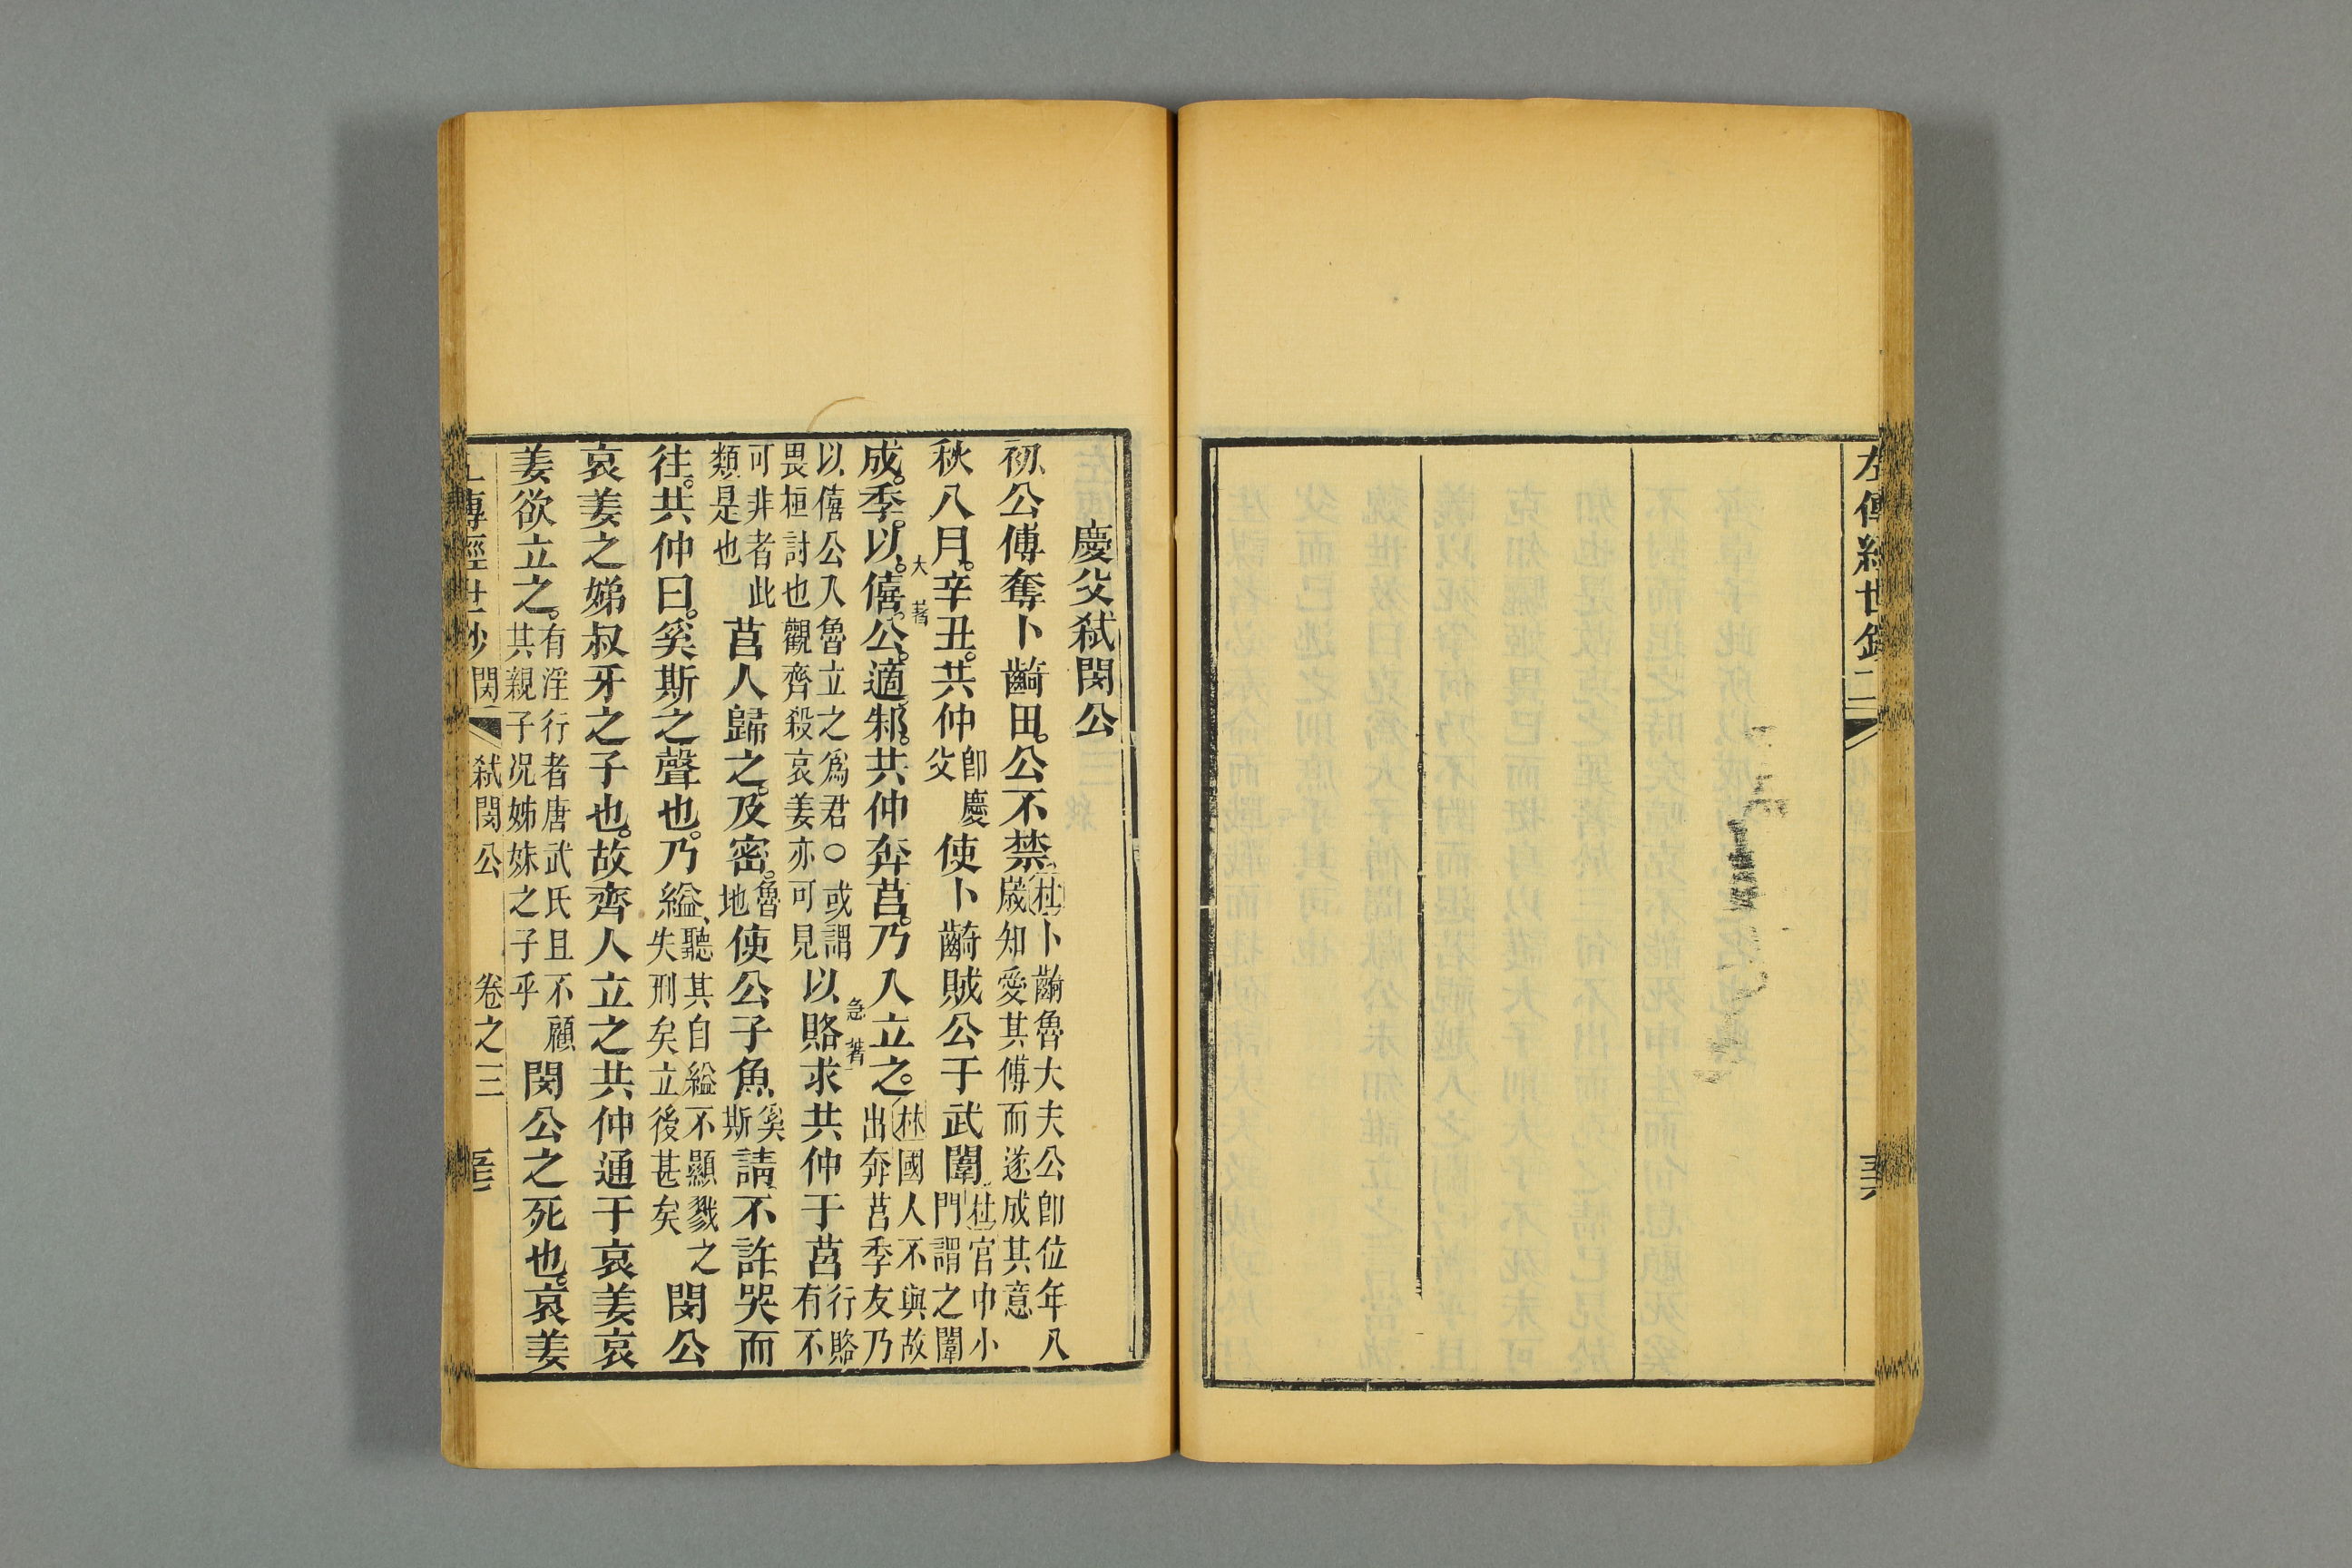 左傳經世鈔二
慶父弑閔公
初公傅奪卜齮田公不禁杜卜齮魯大夫公卽位年八歲知愛其傅而遂成其意
秋八月辛丑共仲卽慶父使卜齮賊公于武闈杜宮中小門謂之闈
大著
成季以僖公適邾共仲奔莒乃入立之林國人不與故出奔莒季友乃
以僖公入魯立之爲君○或謂畏桓討也觀齊殺哀姜亦可見以賂求共仲于莒行賂有不
急著
可非者此類是也莒人歸之及密魯地使公子魚奚斯請不許哭而
往共仲曰奚斯之聲也乃縊聽其自縊不顯戮之失刑矣立後甚矣閔公
哀姜之娣叔牙之子也故齊人立之共仲通于哀姜哀
姜欲立之有淫行者唐武氏且不顧其親子况姊妹之子乎閔公之死也哀姜
傳經世鈔 閔 弑閔公 卷之三